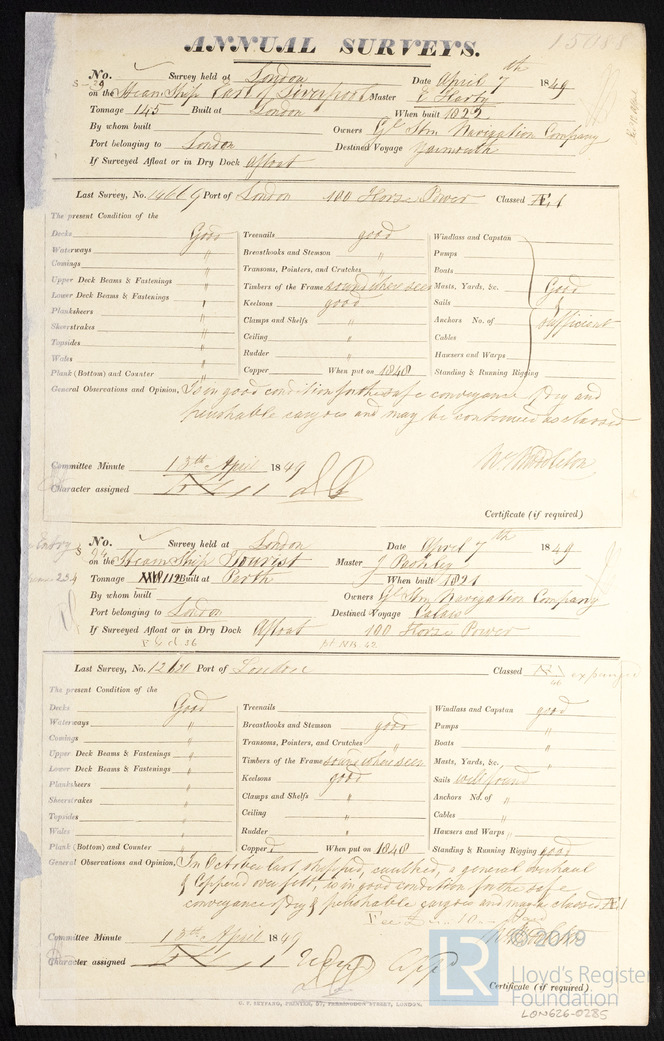 15088
ANNUAL SURVEYS.
No. Survey held at London Date April 7th 1849
on the Steam Ship Earl of Liverpool Master
Tonnage 145 Built at London When built 1822
By whom built Owners Gl Stm Navigation Company
Port belonging to London Destined Voyage Yarmouth
If Surveyed Afloat or in Dry Dock Afloat
Last Survey, No. Port of London 100 Horse Power Classed Æ1
The present Condition of the
Decks Good Treenails good Windlass and Capstan
Waterways " Breasthooks and Stemson " Pumps
Comings " Transoms, Pointers, and Crutches " Boats
Upper Deck Beams & Fastenings " Timbers of the Frame sound where seen Masts, Yards, &c. Good
Lower Deck Beams & Fastenings " Keelsons good Sails &
Planksheers " Clamps and Shelfs " Anchors No. of sufficient
Sheerstrakes " Ceiling " Cables
Topsides " Rudder " Hawsers and Warps
Wales " Copper When put on 1848 Standing & Running Rigging
Plank (Bottom) and Counter "
General Observations and Opinion, Is in good condition for the safe conveyance of dry and
perishable cargoes and may be continued as classed
Committee Minute 13th April 1849
Character assigned
Certificate (if required)
No. Survey held at London Date April 7th 1849
on the Steam Ship Tourist Master J
Tonnage 112 Built at Perth When built 1821
By whom built Owners Gl Stm Navigation Company
Port belonging to London Destined Voyage Calais
If Surveyed Afloat or in Dry Dock Afloat 100 Horse Power
Last Survey, No. Port of London Classed expunged
The present Condition of the
Decks Good Treenails Windlass and Capstan good
Waterways " Breasthooks and Stemson good Pumps "
Comings " Transoms, Pointers, and Crutches " Boats "
Upper Deck Beams & Fastenings " Timbers of the Frame sound where seen Masts, Yards, &c. "
Lower Deck Beams & Fastenings " Keelsons good Sails well found
Planksheers " Clamps and Shelfs " Anchors No. of "
Sheerstrakes " Ceiling " Cables "
Topsides " Rudder " Hawsers and Warps "
Wales " Copperd When put on 1848 Standing & Running Rigging good
Plank (Bottom) and Counter "
General Observations and Opinion, In October last stripped, caulked, & general overhaul
& Coppered over felt, is in good condition for the safe
conveyance of dry & perishable cargoes and may be classed Æ1
Committee Minute 13th April 1849
Character assigned
Certificate (if required).
G. F. SEYFANG, PRINTER, 57, FARRINGDON STREET, LONDON.
© 2019
LR Lloyd's Register
Foundation
LON626-0285